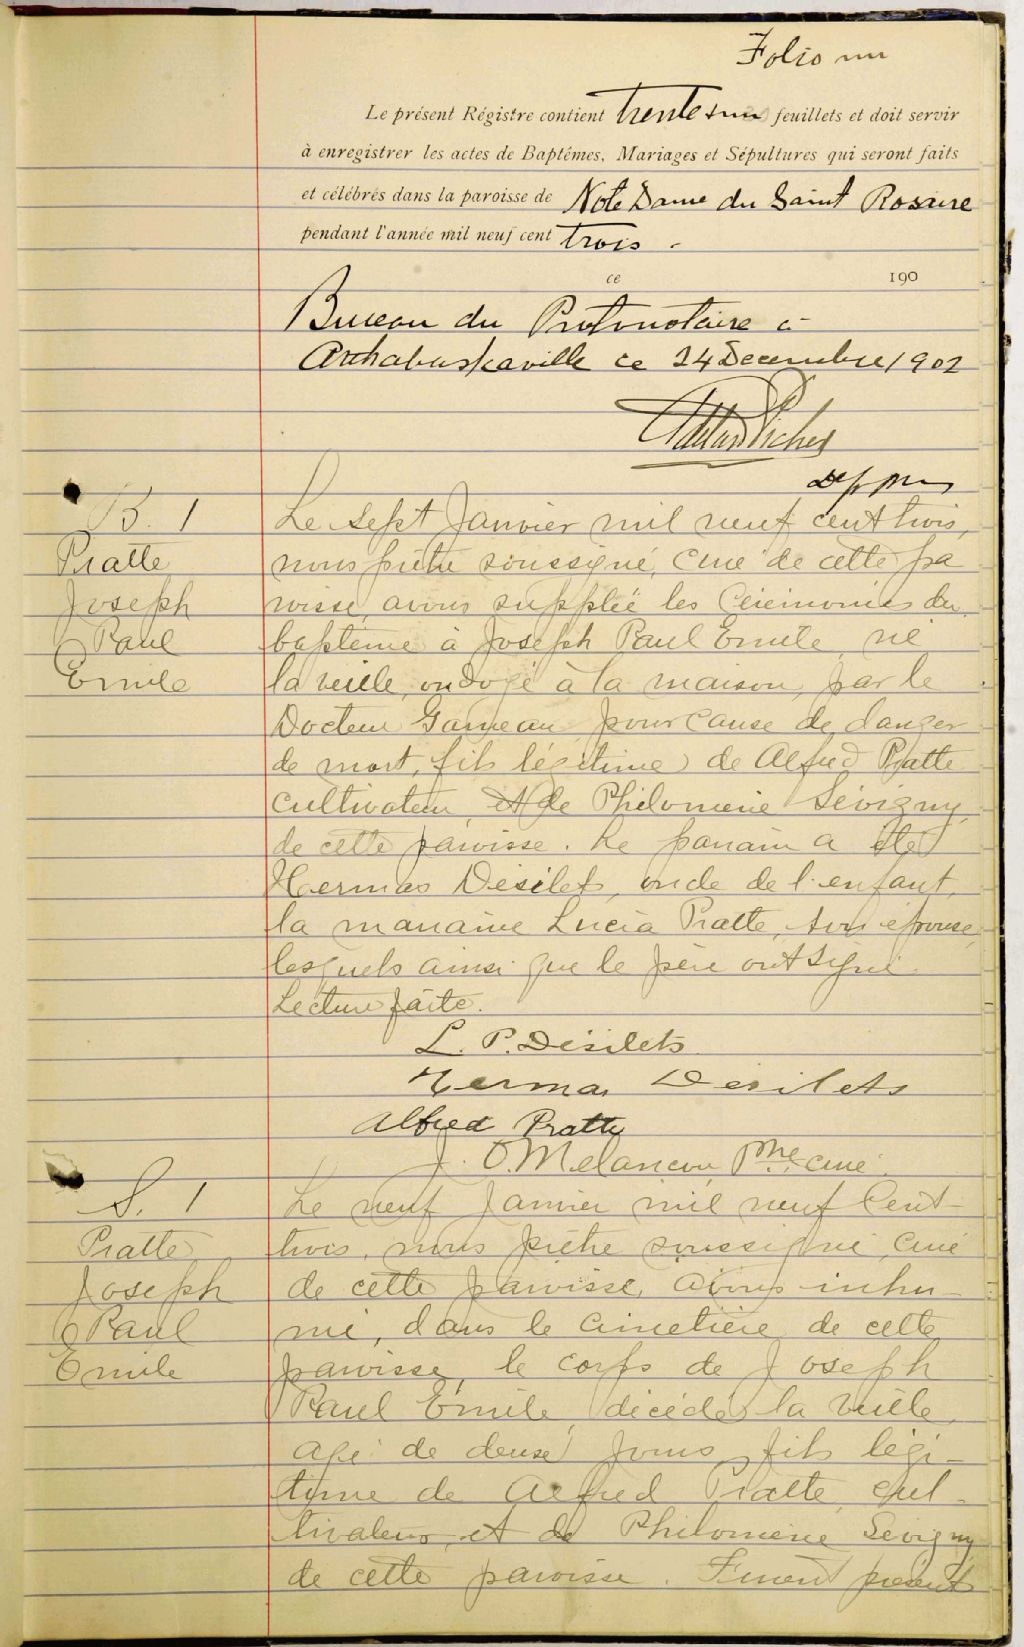 Folio un
Le présent Régistre contient trente & un feuillets et doit servir
à enregistrer les actes de Baptêmes, Mariages et Sépultures qui seront faits
et célébrés dans la paroisse de Note Dame du Saint Rosaire
pendant l'année mil neuf cent trois -
ce 190
Bureau du Protonotaire à
Arthabaskaville ce 24 Decembre 1902
Dep
B. 1
Pratte
Joseph
Paul
Emile
Le sept Janvier mil neuf cent trois,
nous prêtre soussigné, curé de cette pa
roisse, avons suppléé les Cérémonies du
baptême à Joseph Paul Emile, né
la veille, ondoyé à la maison, par le
Docteur Garneau, pour cause de danger
de mort, fils légitime de Alfred Pratte
cultivateur, et de Philomène Sévigny,
de cette paroisse. Le parrain a été
Hermas Désilets, oncle de l'enfant,
la marraine Lucia Pratte, son épouse,
lesquels ainsi que le père ont signé.
Lecture faite.
L. P. Désilets
Hermas Désilets
Alfred Pratte
J. O. Melancon, Ptre curé.
S. 1
Pratte
Joseph
Paul
Emile
Le neuf Janvier mil neuf Cent-
trois, nous prêtre soussigné, curé
de cette paroisse, avons inhu-
mé, dans le cimetière de cette
paroisse, le corps de Joseph
Paul Emile, décédé la veille,
agé de deux jours, fils légi-
time de Alfred Pratte, cul-
tivateur, et de Philomène Sevigny
de cette paroisse. Furent présents